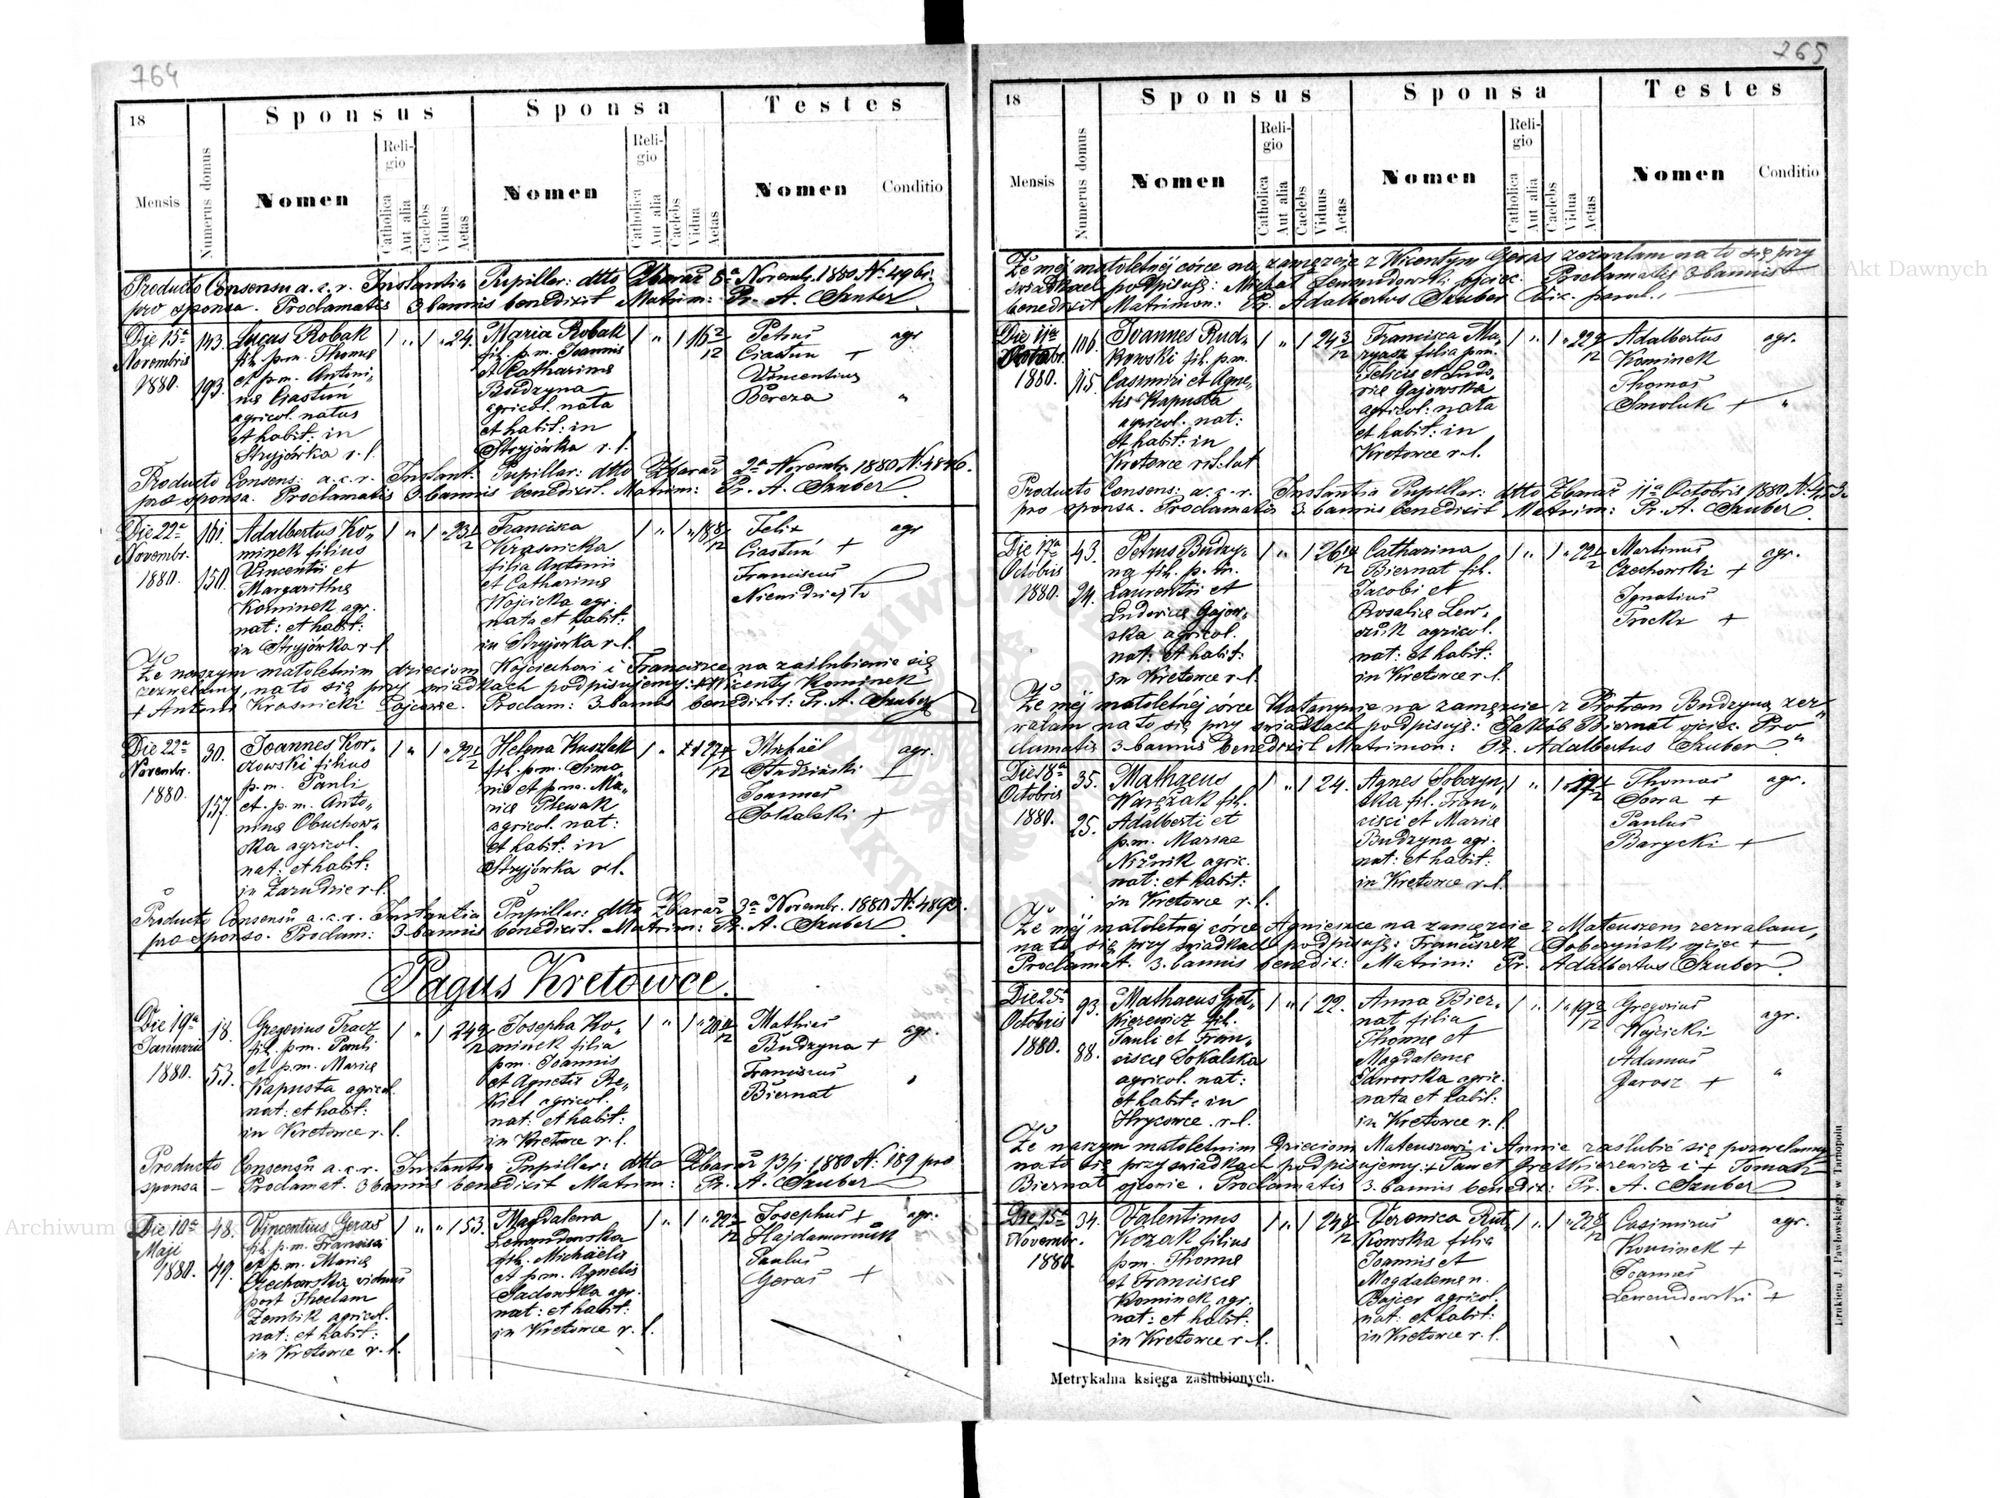 764
18
Mensis
Numerus domus
Sponsus
Nomen
Religio
Catholica
Aut alia
Caelebs
Viduus
Aetas
Sponsa
Nomen
Religio
Catholica
Aut alia
Caelebs
Vidua
Aetas
Testes
Nomen
Conditio
Producto Consensu a. c. r. Instantia Pupillar: dtto Zbaraż 8a Novembr. 1880 N:
pro sponsa. Proclamatis 3 bannis benedixit Matrim: Pr. A. Szuber
Die 15a
Novembris
1880.
143.
193.
Lucas Robak
fil. p.m. Thomae
et p.m. Antoni-
nae Ciastuń
agricol. natus
et habit: in
Stryjówka r. l.
24.
Maria Robak
fil. p.m. Joannis
et Catharinae
Budzyna
agricol. nata
et habit: in
Stryjówka r. l.
16 2/12
Petrus
Ciastuń +
Vincentius
Bereza
agr
"
Producto Consens: a. c. r. Instant. Pupillar: dtto Zbaraż 2a Novembr. 1880 N: 4846.
pro sponsa. Proclamatis 3 bannis benedixit. Matrim: Pr. A. Szuber
Die 22a
Novembr.
1880.
161.
150.
Adalbertus Ko-
minek filius
Vincentii et
Margarithae
Kominek agr.
nat: et habit:
in Stryjówka r. l
23 1/2
Francisca
Krasnicka
filia Antonii
et Catharinae
Wojcicka agr.
nata et habit:
in Stryjówka r. l.
18 8/12
Felix
Ciastuń +
Franciscus
agr
Że naszym małoletnim dzieciom Wojciechowi i Franciszce na zaślubienie się
zezwalamy, na to się przy świadkach podpisujemy: + Wicenty Kominek
+ Antoni Krasnicki Ojcowie. Proclam: 3 bannis benedixit: Pr. A. Szuber
Die 22a
Novembr.
1880.
30.
157.
Joannes Kor-
czowski filius
p.m. Pauli
et p.m. Anto-
ninae Obuchow-
ska agricol.
nat: et habit:
in Zarudzie r. l.
22 1/2
Helena Kuszlak
fil. p.m. Simo
nis et p.m. Ma-
riae Plewak
agricol. nat:
et habit: in
Stryjówka r. l.
Michaël
Joannes
Sokalski +
agr.
Producto Consensu a. c. r. Instantia Pupillar: dtto Zbaraż 3a Novembr. 1880 N: 4890.
pro sponso. Proclam: 3 bannis benedixit. Matrim: Pr. A. Szuber
Pagus Kretowce.
Die 19a
Januarii
1880.
18.
53.
Gregorius Tracz
fil. p.m. Pauli
et p.m. Mariae
Kapusta agricol.
nat: et habit:
in Kretowce r. l.
24 9/12
Josepha Ko-
minek filia
p.m. Joannis
et Agnetis Re-
kiel agricol.
nat: et habit:
in Kretowce r. l.
20 11/12
Mathias
Budzyna +
Franciscus
Biernat
agr.
Producto Consensu a. c. r. Instantia Pupillar: dtto Zbaraż 13/1 1880 N: 189 pro
sponsa – Proclamat. 3 bannis benedixit Matrim: Pr. A. Szuber
Die 10a
Maji
1880.
48.
49.
Vincentius Geras
fil. p.m. Francisci
et p.m. Mariae
Czechowska viduus
post Theclam
Zembik agricol.
nat: et habit:
in Kretowce r. l.
53.
Magdalena
Lewandowska
fil. Michaelis
et p.m. Agnetis
Sadowska agr.
nat: et habit:
in Kretowce r. l.
22 2/12
Josephus +
Hajdamowicz
Paulus
Geras +
agr.
265
18
Mensis
Numerus domus
Sponsus
Nomen
Religio
Catholica
Aut alia
Caelebs
Viduus
Aetas
Sponsa
Nomen
Religio
Catholica
Aut alia
Caelebs
Vidua
Aetas
Testes
Nomen
Conditio
Że mej małoletnéj córce na zamęzcie z Wicentym Geras zezwalam na to się przy
świadkach podpisuję: Michał Lewandowski ojciec. Proclamatis 3 bannis
benedixit Matrimon: Pr. Adalbertus Szuber
1880.
106.
115.
Joannes Rud-
kowski fil. p.m.
Casimiri et Agne-
tis Kapusta
agricol. nat:
et habit: in
Kretowce rit: lat
24 3/12
Francisca Ma-
filia p.m.
Felicis et Ludo-
vicae Gajowska
agricol: nata
et habit: in
Kretowce r. l.
22 9/12
Adalbertus
Kominek
Thomas
Smoluk +
agr.
"
Producto Consens: a. c. r. Instantia Pupillar: dtto Zbaraż 11a Octobris 1880 N:
pro sponsa. Proclamatis 3 bannis benedixit Matrim: Pr. A. Szuber
Die 17a
Octobris
1880.
43.
24.
Petrus Budzy-
na fil. p. m.
Laurentii et
Ludovicae Gajow-
ska agricol.
nat: et habit:
in Kretowce r. l.
26
Catharina
Biernat fil.
Jacobi et
Rosaliae Lew-
czuk agricol.
nat: et habit:
in Kretowce r. l.
22 1/2
Martinus
Czechowski +
Ignatius
Trocki +
agr.
Że méj małoletnéj córce Katarzynie na zamęzcie z Piotrem Budzyną zez-
walam na to się przy świadkach podpisuję: Jakób Biernat ojciec. Pro-
clamatis 3 bannis benedixit Matrimon: Pr. Adalbertus Szuber
Die 18a
Octobris
1880.
35.
25.
Mathaeus
Warczak fil.
Adalberti et
p.m. Mariae
Niżnik agric.
nat: et habit:
in Kretowce r. l.
24.
Agnes Sobczyń-
ska fil. Fran-
cisci et Mariae
Budzyna agr.
nat: et habit:
in Kretowce r. l.
Thomas
Sowa +
Paulus
Barycki +
agr.
Że méj małoletnéj córce Agnieszce na zamęzcie z Mateuszem zezwalam,
na to się przy świadkach podpisuję: Franciszek Sobczyński ojciec +
Proclamat. 3. bannis benedix: Matrim: Pr. Adalbertus Szuber
Die 25a
Octobris
1880.
93.
88.
Mathaeus Gret-
kierewicz fil.
Pauli et Fran-
ciscae Sokalska
agricol. nat:
et habit: in
Hrycowce r. l.
22.
Anna Bier-
nat filia
Thomae et
Magdalenae
Jaworska agric.
nata et habit.
in Kretowce r. l.
19 2/12
Gregorius
Wojcicki
Adamus
Jarosz +
agr.
"
Że naszym małoletnim Dzieciom Mateuszowi i Annie zaślubić się pozwalamy
na to się przy świadkach podpisujemy: + Paweł Gretkierewicz i + Tomasz
Biernat ojcowie. Proclamatis 3. bannis benedix: Pr. A. Szuber
Die 15a
Novembr.
1880.
34.
Valentinus
Kozak filius
p.m. Thomae
et Franciscae
Kominek agr.
nat: et habit:
in Kretowce r. l.
24 8/12
Veronica Rut-
kowska filia
Joannis et
Magdalenae n.
Bajcer agricol.
nat: et habit:
in Kretowce r. l.
22 8/12
Casimirus
Kominek +
Joannes
Lewandowski +
agr.
Metrykalna księga zaślubionych.
Drukiem J. Pawłowskiego w Tarnopolu